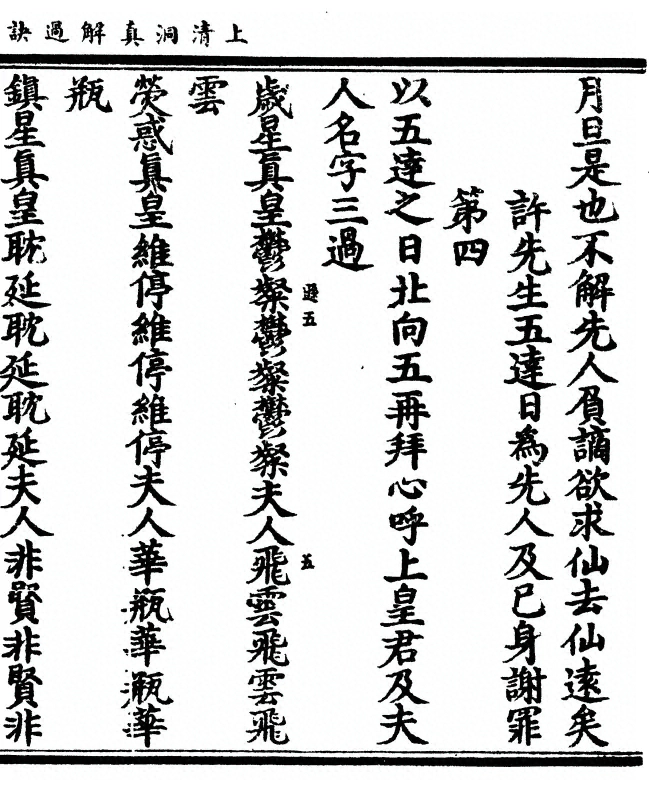 上清洞真解過訣
月旦是也不解先人負謫欲求仙去仙遠矣
許先生五達日為先人及已身謝罪
第四
以五達之日北向五再拜心呼上皇君及夫
人名字三過
歲星真皇鬱㜗鬱㜗鬱㜗夫人飛雲飛雲飛
遜五
五
雲
熒惑真皇維停維停維停夫人華瓶華瓶華
瓶
鎮星真皇耽延耽延耽延夫人非賢非賢非